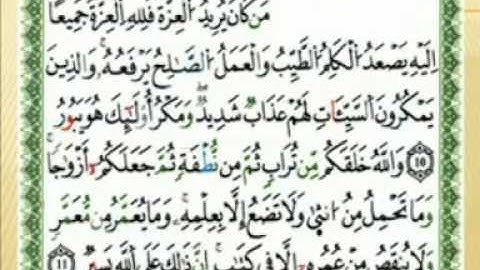 مَن كَانَ يُرِيدُ الْعِزَّةَ فَلِلَّهِ الْعِزَّةُ جَمِيعًا
إِلَيْهِ يَصْعَدُ الْكَلِمُ الطَّيِّبُ وَالْعَمَلُ الصَّالِحُ يَرْفَعُهُ وَالَّذِينَ
يَمْكُرُونَ السَّيِّئَاتِ لَهُمْ عَذَابٌ شَدِيدٌ وَمَكْرُ أُوْلَٰئِكَ هُوَ يَبُورُ
١٠ وَاللَّهُ خَلَقَكُم مِّن تُرَابٍ ثُمَّ مِن نُّطْفَةٍ ثُمَّ جَعَلَكُمْ أَزْوَاجًا
وَمَا تَحْمِلُ مِنْ أُنثَىٰ وَلَا تَضَعُ إِلَّا بِعِلْمِهِ وَمَا يُعَمَّرُ مِن مُّعَمَّرٍ
وَلَا يُنقَصُ مِنْ عُمُرِهِ إِلَّا فِي كِتَابٍ إِنَّ ذَٰلِكَ عَلَى اللَّهِ يَسِيرٌ ١١